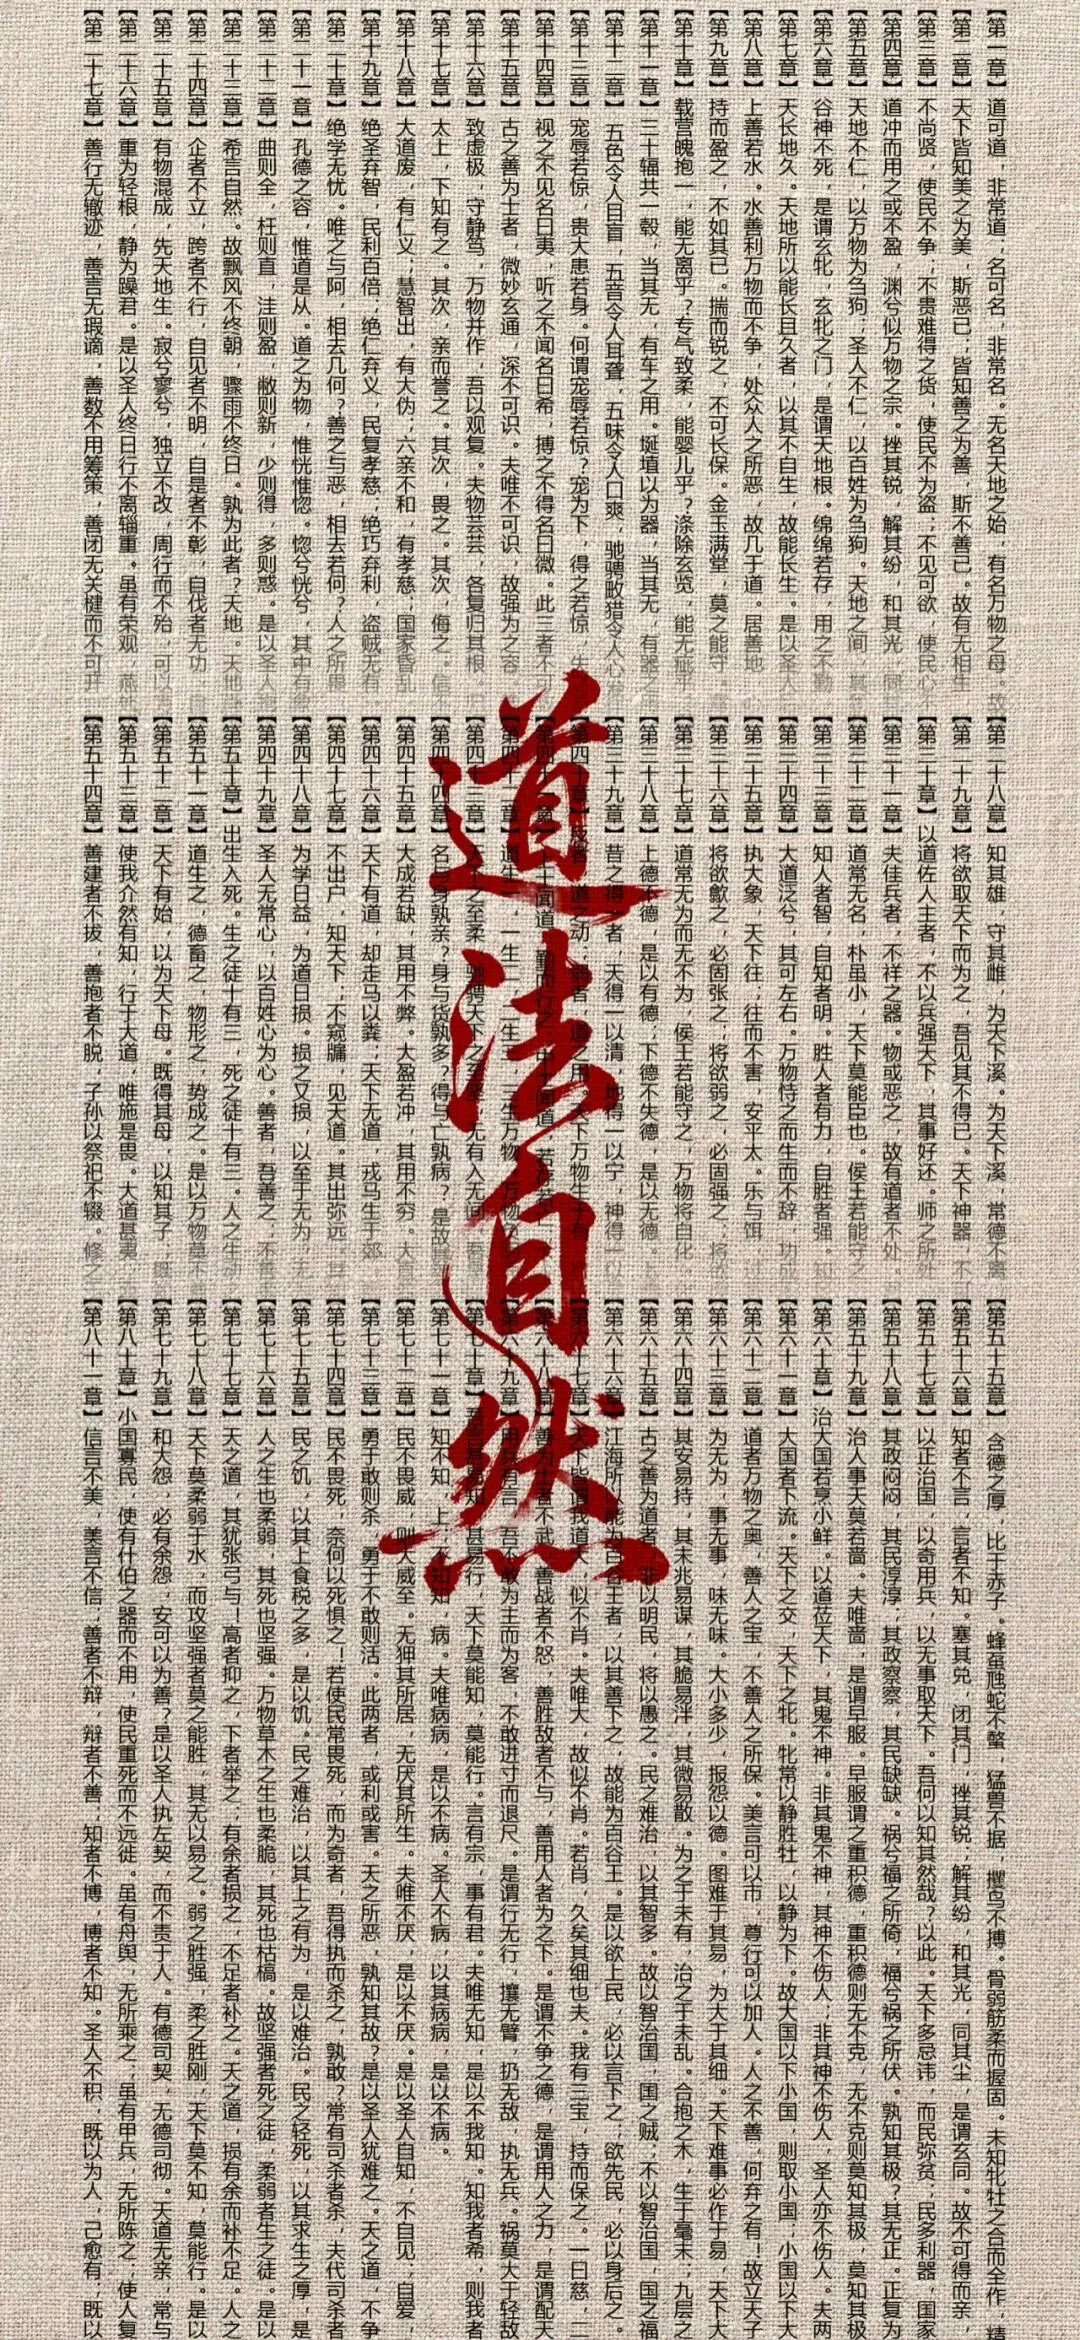 【第一章】道可道，非常道，名可名，非常名。无名天地之始，有名万物之母，故
【第二章】天下皆知美之为美，斯恶已；皆知善之为善，斯不善已。故有无相生
【第三章】不尚贤，使民不争；不贵难得之货，使民不为盗；不见可欲，使民心
【第四章】道冲而用之或不盈，渊兮似万物之宗。挫其锐，解其纷，和其光，同
【第五章】天地不仁，以万物为刍狗；圣人不仁，以百姓为刍狗。天地之间，其
【第六章】谷神不死，是谓玄牝，玄牝之门，是谓天地根。绵绵若存，用之不勤
【第七章】天长地久。天地所以能长且久者，以其不自生，故能长生。是以圣人
【第八章】上善若水。水善利万物而不争，处众人之所恶，故几于道。居善地，心
【第九章】持而盈之，不如其已。揣而锐之，不可长保。金玉满堂，莫之能守
【第十章】载营魄抱一，能无离乎？专气致柔，能婴儿乎？涤除玄览，能无疵乎
【第十一章】三十辐共一毂，当其无，有车之用。埏埴以为器，当其无，有器之
【第十二章】五色令人目盲，五音令人耳聋，五味令人口爽，驰骋畋猎令人心
【第十三章】宠辱若惊，贵大患若身。何谓宠辱若惊？宠为下，得之若惊，失
【第十四章】视之不见名曰夷，听之不闻名曰希，搏之不得名曰微。此三者不可
【第十五章】古之善为士者，微妙玄通，深不可识。夫唯不可识，故强为之容
【第十六章】致虚极，守静笃，万物并作，吾以观复。夫物芸芸，各复归其根。
【第十七章】太上，下知有之。其次，亲而誉之。其次，畏之。其次，侮之。信不
【第十八章】大道废，有仁义；慧智出，有大伪；六亲不和，有孝慈；国家昏乱
【第十九章】绝圣弃智，民利百倍；绝仁弃义，民复孝慈；绝巧弃利，盗贼无有
【第二十章】绝学无忧。唯之与阿，相去几何？善之与恶，相去若何？人之所畏
【第二十一章】孔德之容，惟道是从。道之为物，惟恍惟惚。惚兮恍兮，其中有象
【第二十二章】曲则全，枉则直，洼则盈，敝则新，少则得，多则惑。是以圣人
【第二十三章】希言自然。故飘风不终朝，骤雨不终日。孰为此者？天地。天地
【第二十四章】企者不立，跨者不行，自见者不明，自是者不彰，自伐者无功，自
【第二十五章】有物混成，先天地生。寂兮寥兮，独立不改，周行而不殆，可以为
【第二十六章】重为轻根，静为躁君。是以圣人终日行不离辎重。虽有荣观，燕处
【第二十七章】善行无辙迹，善言无瑕谪，善数不用筹策，善闭无关楗而不可开
【第二十八章】知其雄，守其雌，为天下溪。为天下溪，常德不离
【第二十九章】将欲取天下而为之，吾见其不得已。天下神器，不
【第三十章】以道佐人主者，不以兵强天下，其事好还。师之所处
【第三十一章】夫佳兵者，不祥之器。物或恶之，故有道者不处。
【第三十二章】道常无名，朴虽小，天下莫能臣也。侯王若能守之
【第三十三章】知人者智，自知者明。胜人者有力，自胜者强。知
【第三十四章】大道泛兮，其可左右。万物恃之而生而不辞，功成
【第三十五章】执大象，天下往；往而不害，安平太。乐与饵，过
【第三十六章】将欲歙之，必固张之；将欲弱之，必固强之；将欲
【第三十七章】道常无为而无不为，侯王若能守之，万物将自化。
【第三十八章】上德不德，是以有德；下德不失德，是以无德。上
【第三十九章】昔之得一者，天得一以清，地得一以宁，神得一以
【第四十章】反者，道之动；弱者，道之用。天下万物生于有
【第四十一章】上士闻道，勤而行之；中士闻道，若存若
【第四十二章】道生一，一生二，二生三，三生万物。万物
【第四十三章】天下之至柔，驰骋天下之至坚，无有入无间，吾是
【第四十四章】名与身孰亲？身与货孰多？得与亡孰病？是故
【第四十五章】大成若缺，其用不弊。大盈若冲，其用不穷。大直
【第四十六章】天下有道，却走马以粪；天下无道，戎马生于郊。
【第四十七章】不出户，知天下；不窥牖，见天道。其出弥远，其
【第四十八章】为学日益，为道日损。损之又损，以至于无为，无
【第四十九章】圣人无常心，以百姓心为心。善者，吾善之，不善
【第五十章】出生入死。生之徒十有三，死之徒十有三。人之生动
【第五十一章】道生之，德畜之，物形之，势成之。是以万物莫不
【第五十二章】天下有始，以为天下母。既得其母，以知其子；既
【第五十三章】使我介然有知，行于大道，唯施是畏。大道甚夷，
【第五十四章】善建者不拔，善抱者不脱，子孙以祭祀不辍。修之
【第五十五章】含德之厚，比于赤子。蜂虿虺蛇不螫，猛兽不据，攫鸟不搏。骨弱筋柔而握固。未知牝牡之合而全作，精
【第五十六章】知者不言，言者不知。塞其兑，闭其门，挫其锐；解其纷，和其光，同其尘，是谓玄同。故不可得而亲，
【第五十七章】以正治国，以奇用兵，以无事取天下。吾何以知其然哉？以此。天下多忌讳，而民弥贫；民多利器，国家
【第五十八章】其政闷闷，其民淳淳；其政察察，其民缺缺。祸兮福之所倚，福兮祸之所伏。孰知其极？其无正。正复为
【第五十九章】治人事天莫若啬。夫唯啬，是谓早服。早服谓之重积德，重积德则无不克，无不克则莫知其极，莫知其极
【第六十章】治大国若亨小鲜。以道莅天下，其鬼不神。非其鬼不神，其神不伤人；非其神不伤人，圣人亦不伤人。夫两
【第六十一章】大国者下流。天下之交，天下之牝。牝常以静胜牡，以静为下。故大国以下小国，则取小国；小国以下大
【第六十二章】道者万物之奥，善人之宝，不善人之所保。美言可以市，尊行可以加人。人之不善，何弃之有！故立天子
【第六十三章】为无为，事无事，味无味。大小多少，报怨以德。图难于其易，为大于其细。天下难事必作于易，天下大
【第六十四章】其安易持，其未兆易谋，其脆易泮，其微易散。为之于未有，治之于未乱。合抱之木，生于毫末；九层之
【第六十五章】古之善为道者，非以明民，将以愚之。民之难治，以其智多。故以智治国，国之贼；不以智治国，国之福
【第六十六章】江海所以能为百谷王者，以其善下之，故能为百谷王。是以欲上民，必以言下之；欲先民，必以身后之。
【第六十七章】天下皆谓我道大，似不肖。夫唯大，故似不肖。若肖，久矣其细也夫。我有三宝，持而保之。一曰慈，二
【第六十八章】善为士者不武，善战者不怒，善胜敌者不与，善用人者为之下。是谓不争之德，是谓用人之力，是谓配天
【第六十九章】用兵有言，吾不敢为主而为客，不敢进寸而退尺。是谓行无行，攘无臂，扔无敌，执无兵。祸莫大于轻敌
【第七十章】吾言甚易知，甚易行，天下莫能知，莫能行。言有宗，事有君。夫唯无知，是以不我知。知我者希，则我者
【第七十一章】知不知，上；不知知，病。夫唯病病，是以不病。圣人不病，以其病病，是以不病。
【第七十二章】民不畏威，则大威至。无狎其所居，无厌其所生。夫唯不厌，是以不厌。是以圣人自知，不自见；自爱，
【第七十三章】勇于敢则杀，勇于不敢则活。此两者，或利或害。天之所恶，孰知其故？是以圣人犹难之。天之道，不争
【第七十四章】民不畏死，奈何以死惧之！若使民常畏死，而为奇者，吾得执而杀之，孰敢？常有司杀者杀，夫代司杀者
【第七十五章】民之饥，以其上食税之多，是以饥。民之难治，以其上之有为，是以难治。民之轻死，以其求生之厚，是
【第七十六章】人之生也柔弱，其死也坚强。万物草木之生也柔脆，其死也枯槁。故坚强者死之徒，柔弱者生之徒。是以
【第七十七章】天之道，其犹张弓与！高者抑之，下者举之；有余者损之，不足者补之。天之道，损有余而补不足。人之
【第七十八章】天下莫柔弱于水，而攻坚强者莫之能胜，其无以易之。弱之胜强，柔之胜刚，天下莫不知，莫能行。是以
【第七十九章】和大怨，必有余怨，安可以为善？是以圣人执左契，而不责于人。有德司契，无德司彻。天道无亲，常与
【第八十章】小国寡民，使有什伯之器而不用，使民重死而不远徙。虽有舟舆，无所乘之；虽有甲兵，无所陈之；使人复
【第八十一章】信言不美，美言不信，善者不辩，辩者不善；知者不博，博者不知。圣人不积，既以为人，己愈有；既以
道法自然